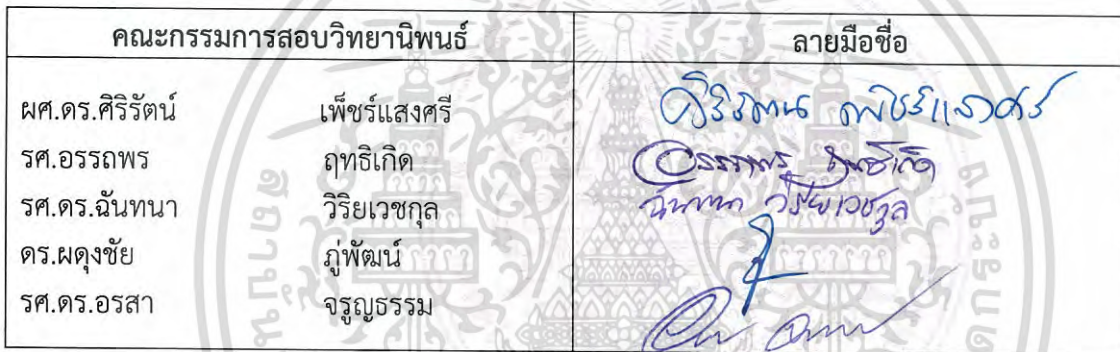 คณะกรรมการสอบวิทยานิพนธ์ ลายมือชื่อ
ผศ.ดร.ศิริรัตน์ เพ็ชร์แสงศรี ศิริรัตน์ เพ็ชร์แสงศรี
รศ.อรรถพร ฤทธิเกิด อรรถพร ฤทธิเกิด
รศ.ดร.ฉันทนา วิริยเวชกุล ฉันทนา วิริยเวชกุล
ดร.ผดุงชัย ภู่พัฒน์
รศ.ดร.อรสา จรูญธรรม